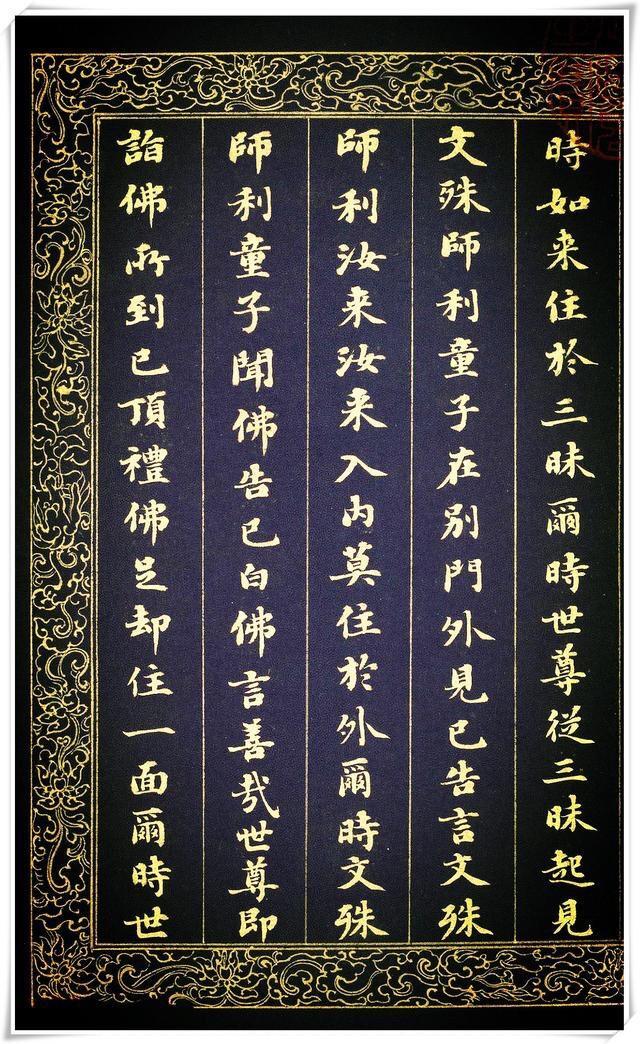 時如来住於三昧爾時世尊従三昧起見
文殊師利童子在别門外見已告言文殊
師利汝来汝来入内莫住於外爾時文殊
師利童子聞佛告已白佛言善哉世尊即
詣佛所到已頂禮佛足却住一面爾時世